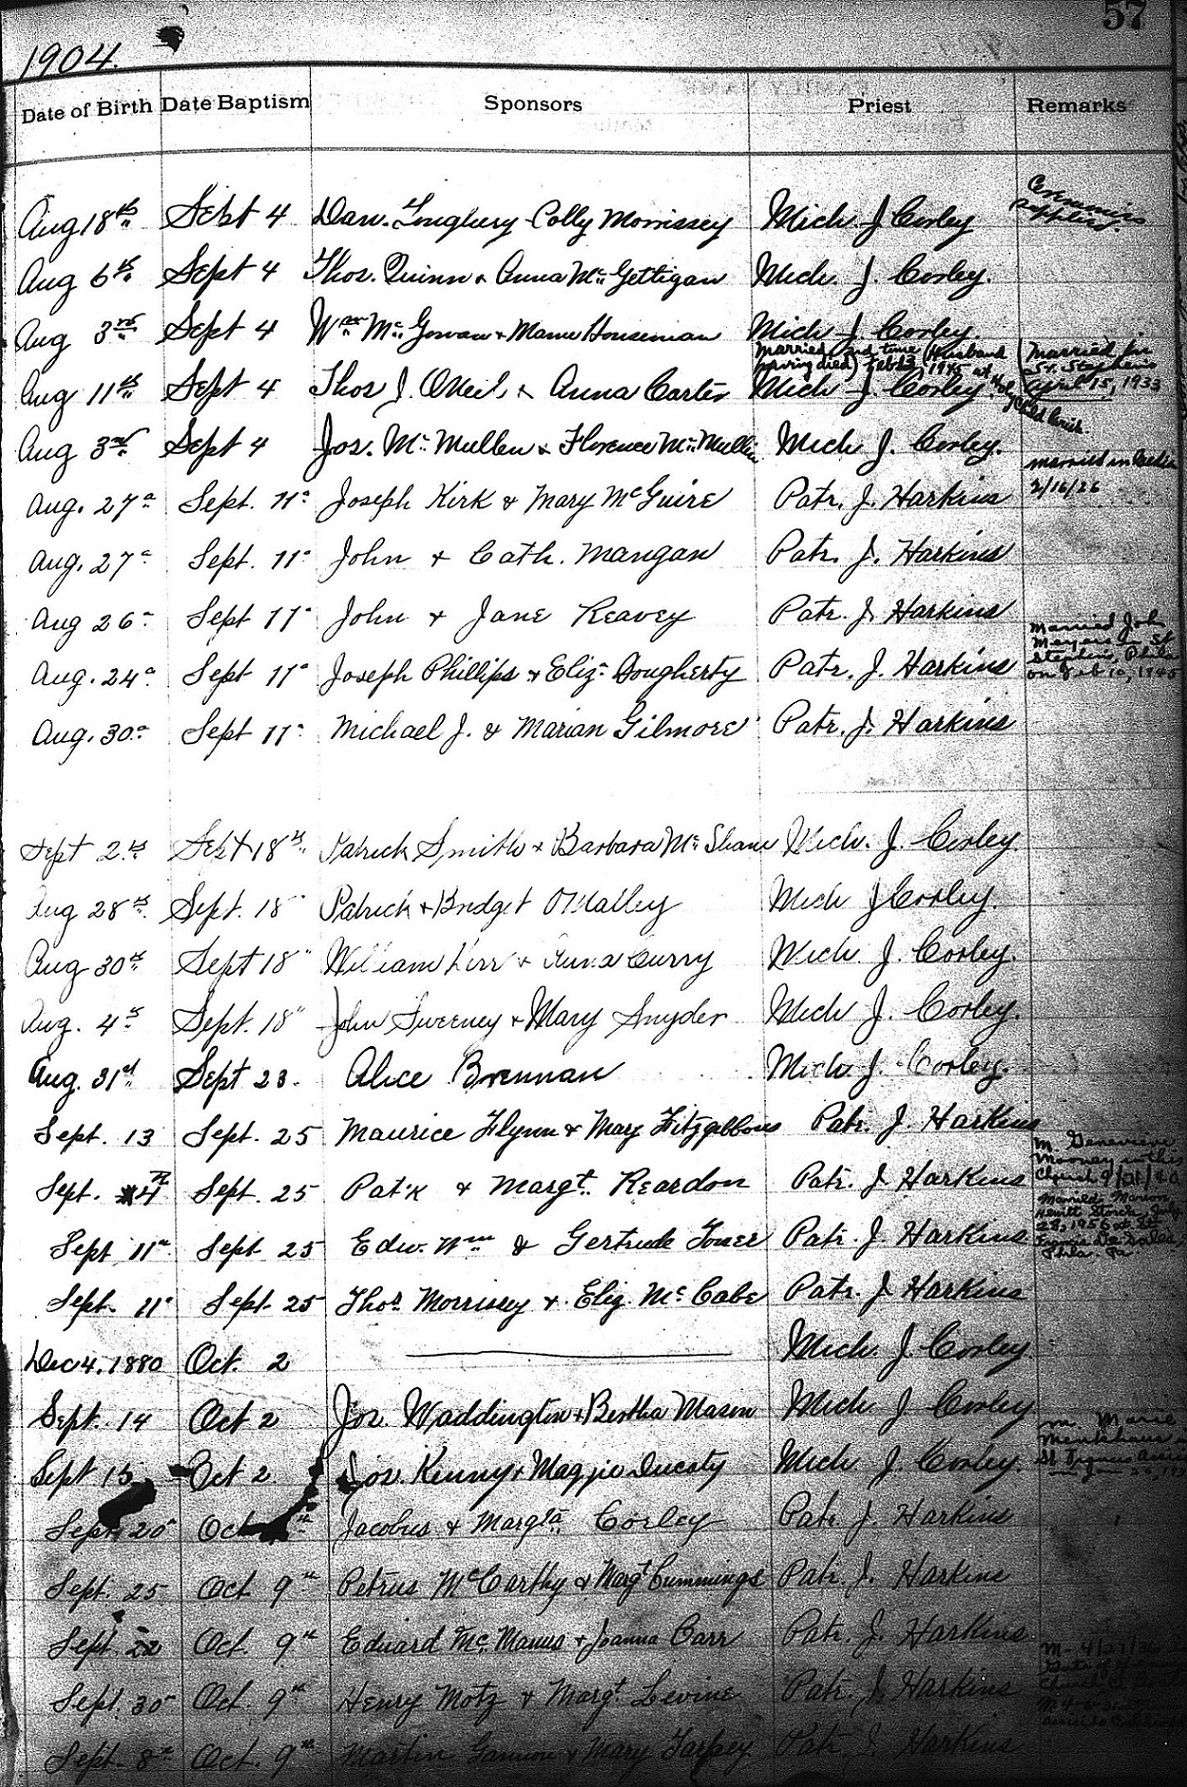 57
1904.
Date of Birth Date Baptism Sponsors Priest Remarks
Aug 18th Sept 4 Dan. Loughery Colly Morrissey Mich J Corley Ceremonies
supplied.
Aug 6th Sept 4 Thos. Quinn & Anna Mc Gettigan Mich. J. Corley.
Aug 3rd Sept 4 Wm Mc Gowan & Mame Houseman Mich J Corley
Married 2nd time (Husband
having died) Feb 13, 1945 at Holy
Child Parish.
Married in
St. Stephens
April 15, 1933
Aug 11th Sept 4 Thos J. ONeil & Anna Carter Mich J. Corley
Aug 3rd Sept 4 Jos. Mc Mullen & Florence Mc Mullin Mich J. Corley.
married in
2/16/26
Aug. 27th Sept. 11th Joseph Kirk & Mary McGuire Patr. J. Harkins
Aug. 27th Sept. 11th John & Cath. Mangan Patr. J. Harkins
Aug 26th Sept 11th John & Jane Reavey Patr. J. Harkins
Married John
Meyers in St
Stephens, Phila
on Feb 10, 1945
Aug. 24th Sept 11th Joseph Phillips & Eliz. Dougherty Patr. J. Harkins
Aug. 30th Sept 11th Michael J. & Marian Gilmore Patr. J. Harkins
Sept 2nd Sept 18th Patrick Smith & Barbara Mc Shane Mich. J. Corley
Aug 28th Sept. 18" Patrick & Bridget OMalley Mich J Corley.
Aug 30th Sept 18" William Kerr & Anna Curry Mich. J. Corley.
Aug. 4th Sept. 18" John Sweeney & Mary Snyder Mich J. Corley.
Aug. 31st Sept 23. Alice Brennan Mich. J. Corley.
Sept. 13 Sept. 25 Maurice Flynn & Mary Fitzgibbons Patr. J. Harkins
M. Genevieve
Mooney in this
Church 9/21/40
Sept. 4th Sept. 25 Pat'k & Margt. Reardon Patr. J. Harkins
Married Marion
Hewitt Storck, July
28, 1956 at St
Francis De Sales,
Phila. Pa.
Sept 11th Sept. 25 Edw. Wm & Gertrude Toner Patr. J. Harkins
Sept. 11th Sept. 25 Thos Morrissey & Eliz. Mc Cabe Patr. J. Harkins
Dec 4. 1880 Oct. 2 Mich. J. Corley
Sept. 14 Oct 2 Jos Waddington & Bertha Mason Mich J Corley
m. Marie
Sept 15 Oct 2 Jos. Kenny & Maggie Ducoty Mich J. Corley
Sept. 20 Oct Jacobus & Margta Corley Patr. J. Harkins
Sept. 25 Oct. 9th Petrus McCarthy & Margt Cummings Patr. J. Harkins
Sept. 22 Oct. 9th Eduard Mc Manus & Joanna Carr Patr. J. Harkins
M- 4/27/36
Sept. 30 Oct. 9th Henry Motz & Margt. Levine Patr. J. Harkins
Sept. 8th Oct. 9th Martin Gannon & Mary Tarpey Patr. J. Harkins